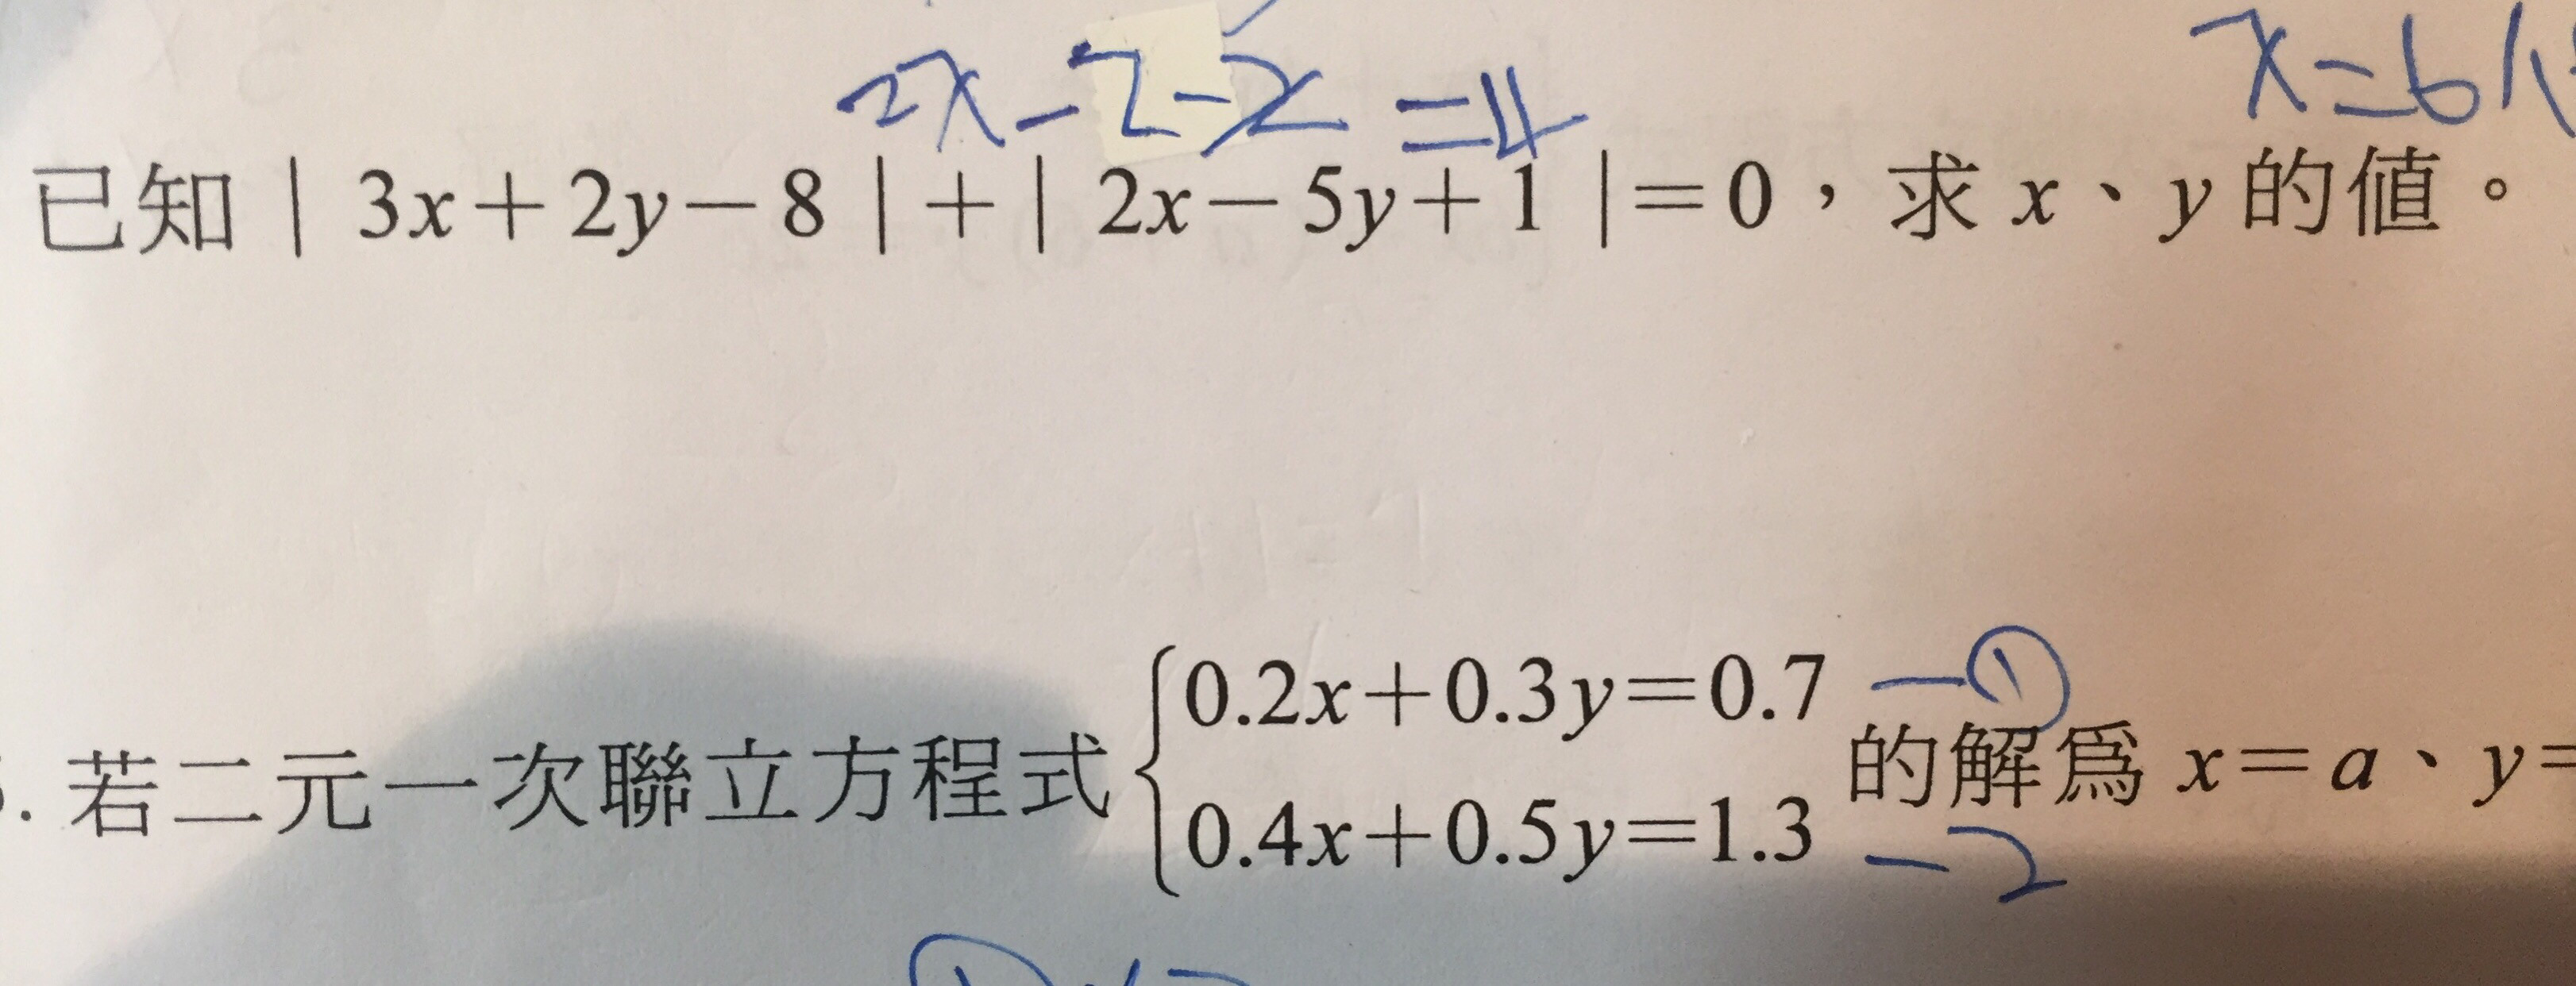 2x-7-x=4
x=6
已知｜3x+2y-8｜+｜2x-5y+1｜=0，求 x、y 的值。
0.2x+0.3y=0.7 —①
若二元一次聯立方程式 的解爲 x=a、y=
0.4x+0.5y=1.3 —2